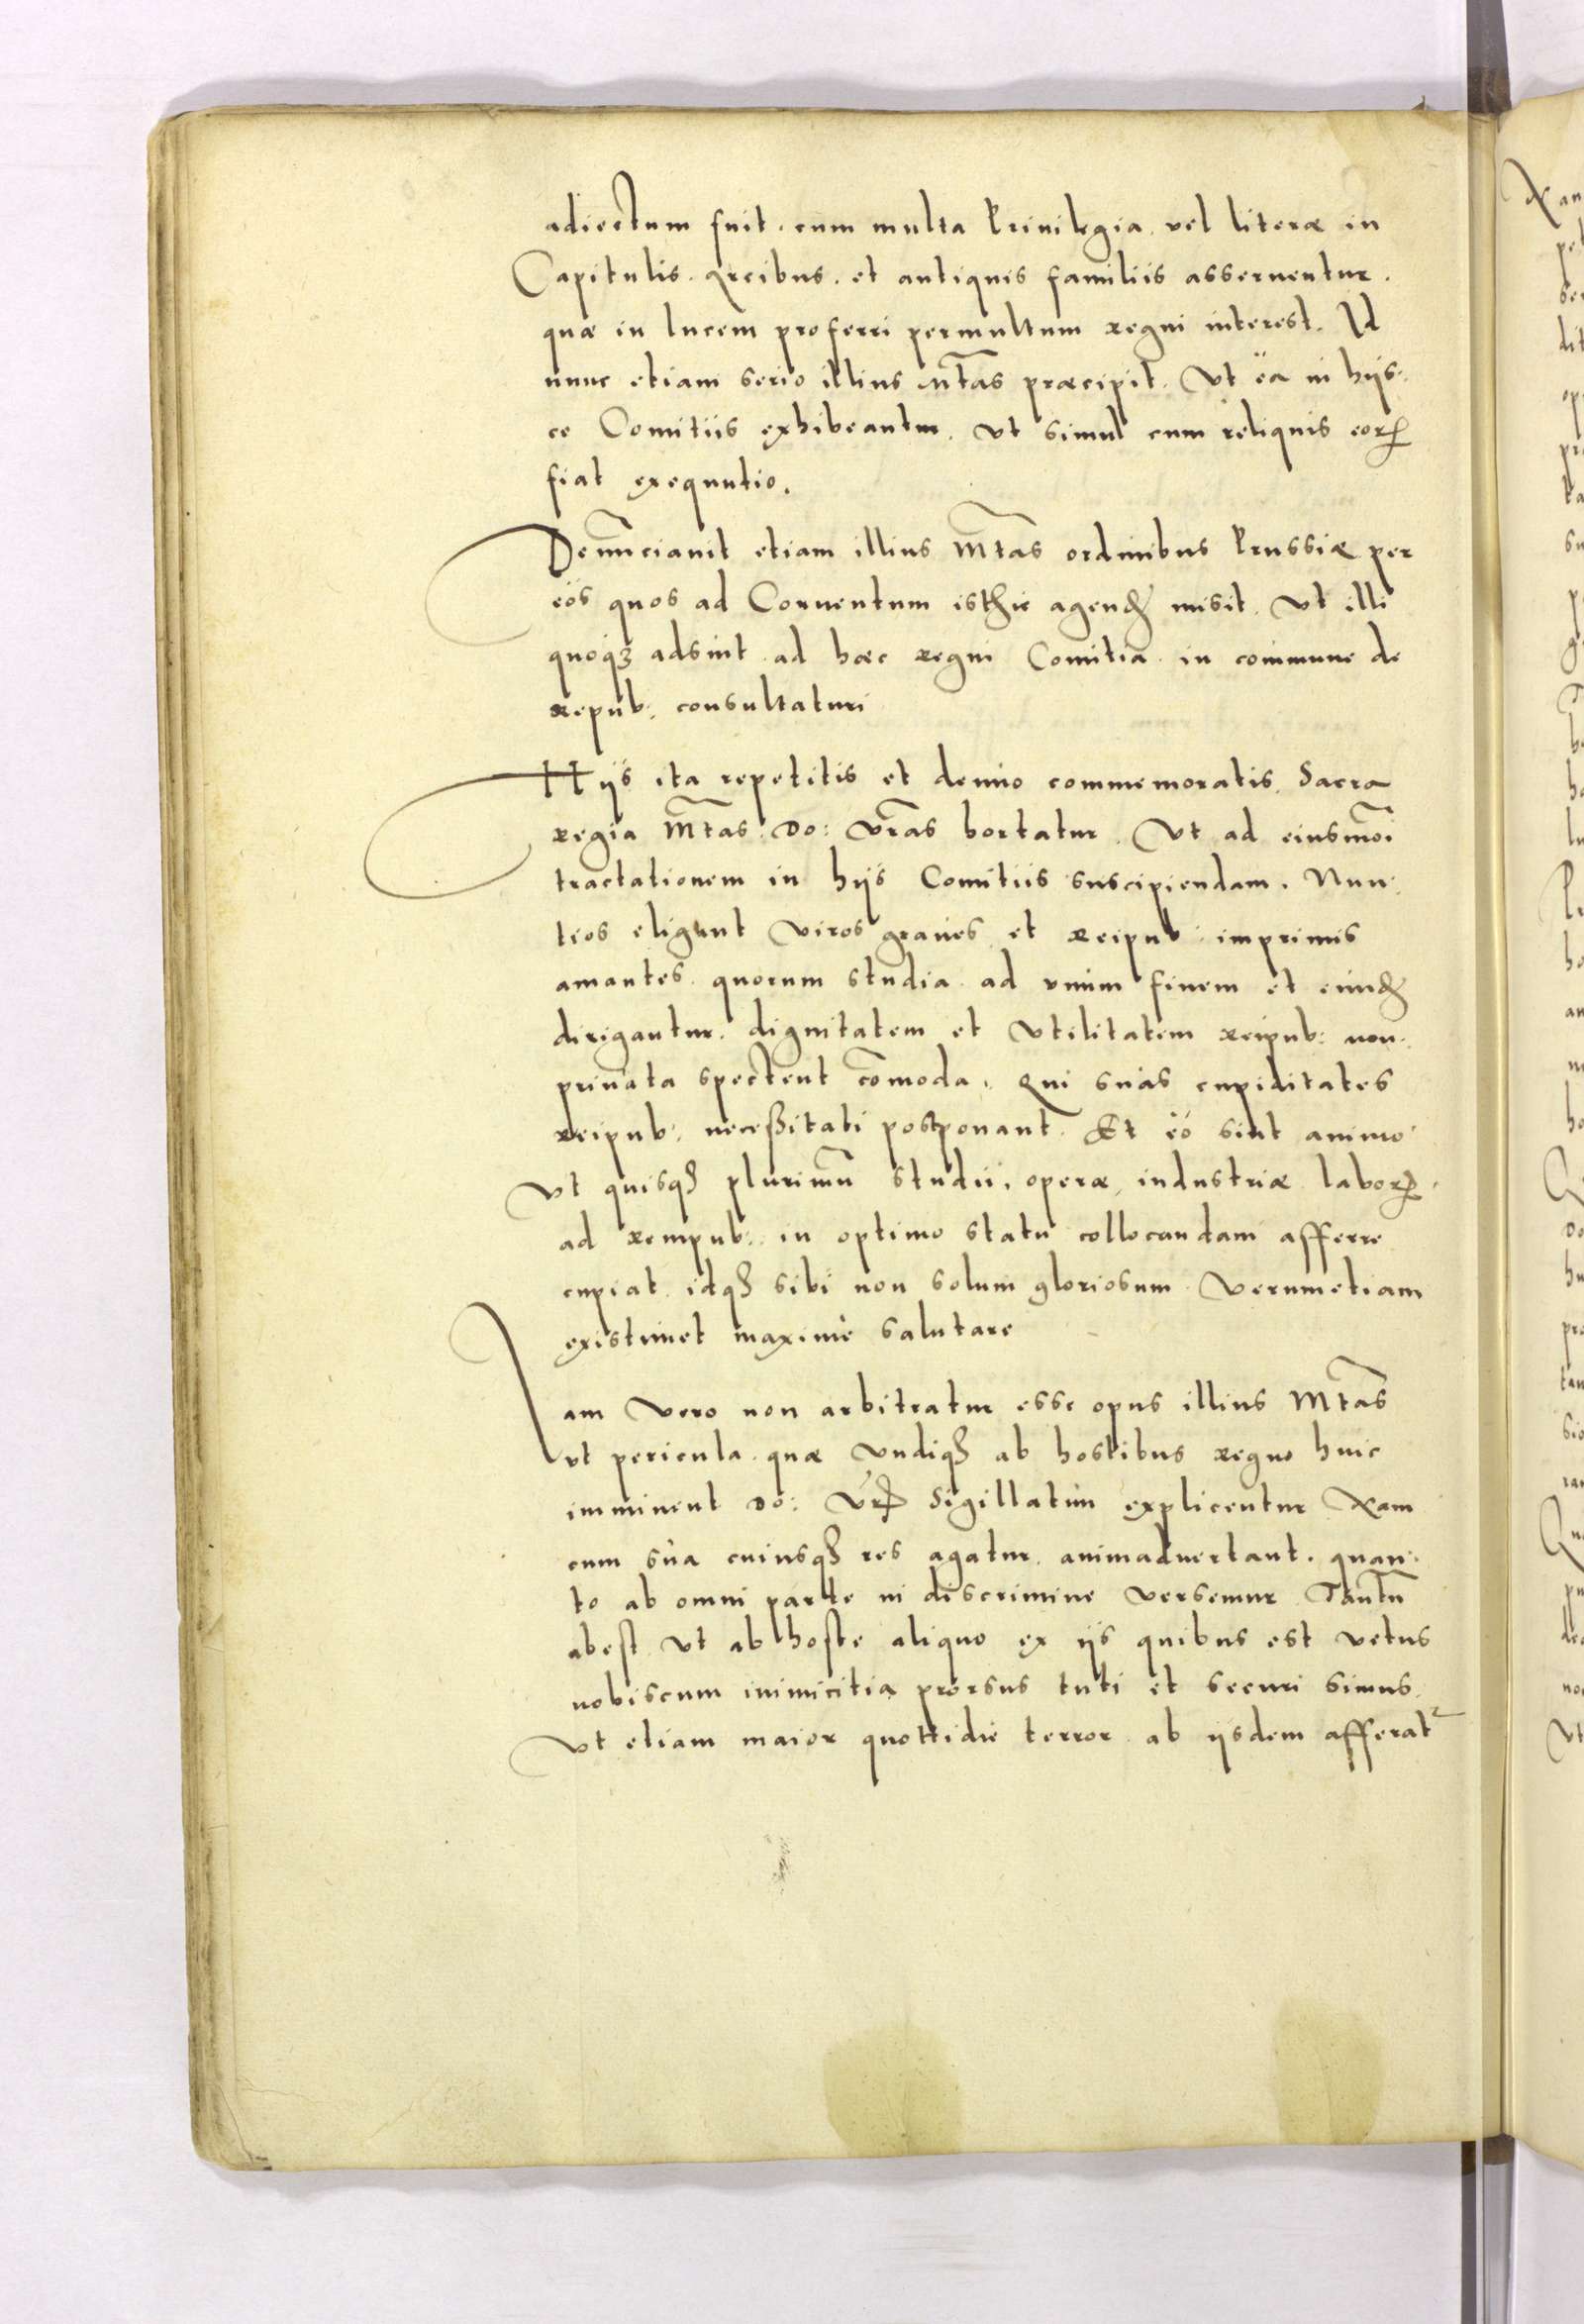 adiectum fuit. cum multa Priuilegia vel literæ in
Capitulis. Arcibus. et antiquis familiis asseruentur.
quæ in lucem proferri permultum regni interest. Id
nunc etiam serio illius Mtas præcipit. Vt ea in hijs:
ce Comitiis exhibeantur, vt simul cum reliquis eorꝝ
fiat exequutio.
Denũciauit etiam illius Mtas ordinibus Prussiæ per
eos quos ad Conuentum isthic agendũ misit. Vt illi
quoqꝫ adsint ad hæc regni Comitia in commune de
repub: consultaturi
Hijs ita repetitis et denuo commemoratis. Sacra
regia Mtas Do: Vr̃as hortatur. Vt ad eiusmõi
tractationem in hijs Comitiis suscipiendam. Nun:
tios eligant Viros graues et reipub: imprimis
amantes. quorum studia ad vnum finem et eundẽ
dirigantur. dignitatem et Vtilitatem reipub: non
priuata spectent cõmoda. Qui suas cupiditates
reipub: neceßitati postponant. Et eo sint animo
Vt quisqꝫ plurimũ studii, operæ, industriæ laborꝝ.
ad rempub: in optimo statu collocandam afferre
cupiat. idqꝫ sibi non solum gloriosum Verumetiam
existimet maximè salutare
Iam Vero non arbitratur esse opus illius Mtas
vt pericula. quæ Vndiqꝫ ab hostibus regno huic
imminent Do: Vrꝝ Sigillatim explicentur Nam
cum sua cuiusqꝫ res agatur. animaduertant. quan:
to ab omni parte in discrimine Versemur Tantũ
abest Vt ab hoste aliquo ex ijs quibus est Vetus
nobiscum inimicitia prorsus tuti et securi simus.
Vt etiam maior quottidie terror ab ijsdem afferat᷑